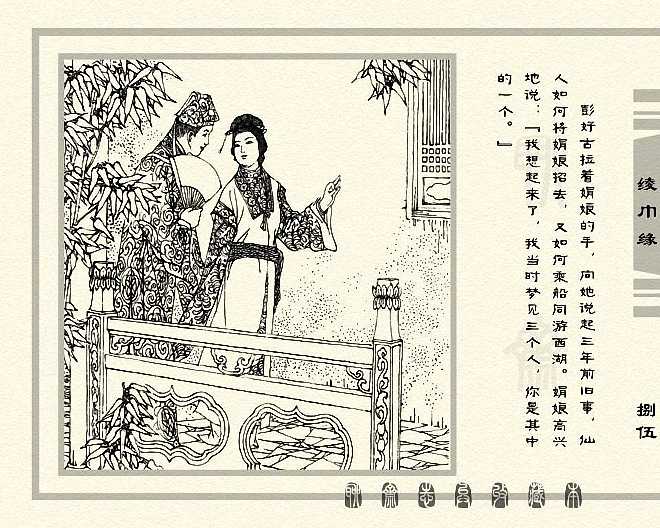 彭好古拉着娟娘的手，向她说起三年前旧事，仙
人如何将娟娘招去，又如何乘船同游西湖。娟娘高兴
地说：“我想起来了，我当时梦见三个人，你是其中
的一个。”
绫巾缘
捌伍
聊斋志异收藏本